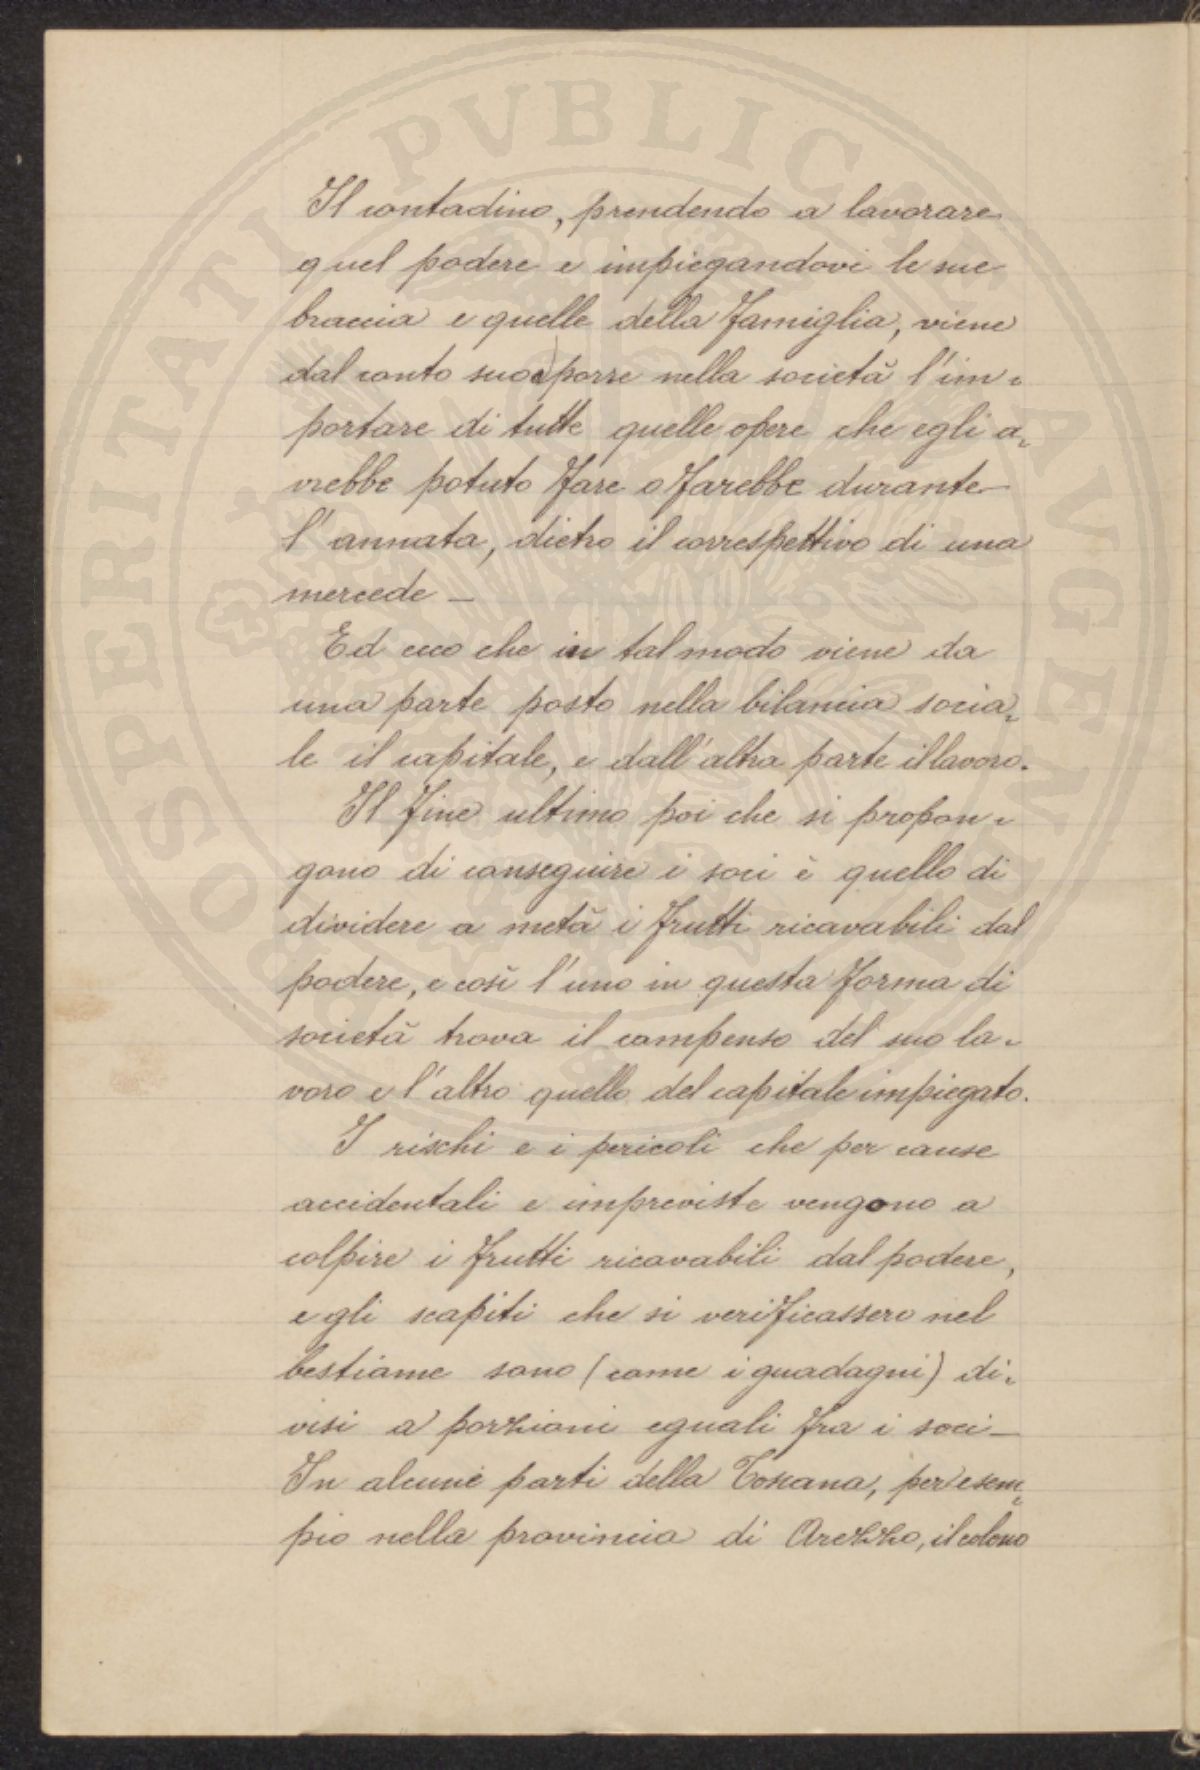 PROSPERITATI PVBLICAE AVGENDAE
Il contadino, prendendo a lavorare
quel podere e impiegandovi le sue
braccia e quelle della famiglia, viene
dal conto suo a porre nella società l'im-
portare di tutte quelle opere che egli a-
vrebbe potuto fare o farebbe durante
l'annata, dietro il correspettivo di una
mercede —
Ed ecco che in tal modo viene da
una parte posto nella bilancia socia-
le il capitale, e dall'altra parte il lavoro.
Il fine ultimo poi che si propon-
gono di conseguire i soci è quello di
dividere a metà i frutti ricavabili dal
podere, e così l'uno in questa forma di
società trova il compenso del suo la-
voro e l'altro quello del capitale impiegato.
I rischi e i pericoli che per cause
accidentali e impreviste vengono a
colpire i frutti ricavabili dal podere,
e gli scapiti che si verificassero nel
bestiame sono (come i guadagni) di-
visi a porzioni eguali fra i soci —
In alcune parti della Toscana, per esem-
pio nella provincia di Arezzo, il colono